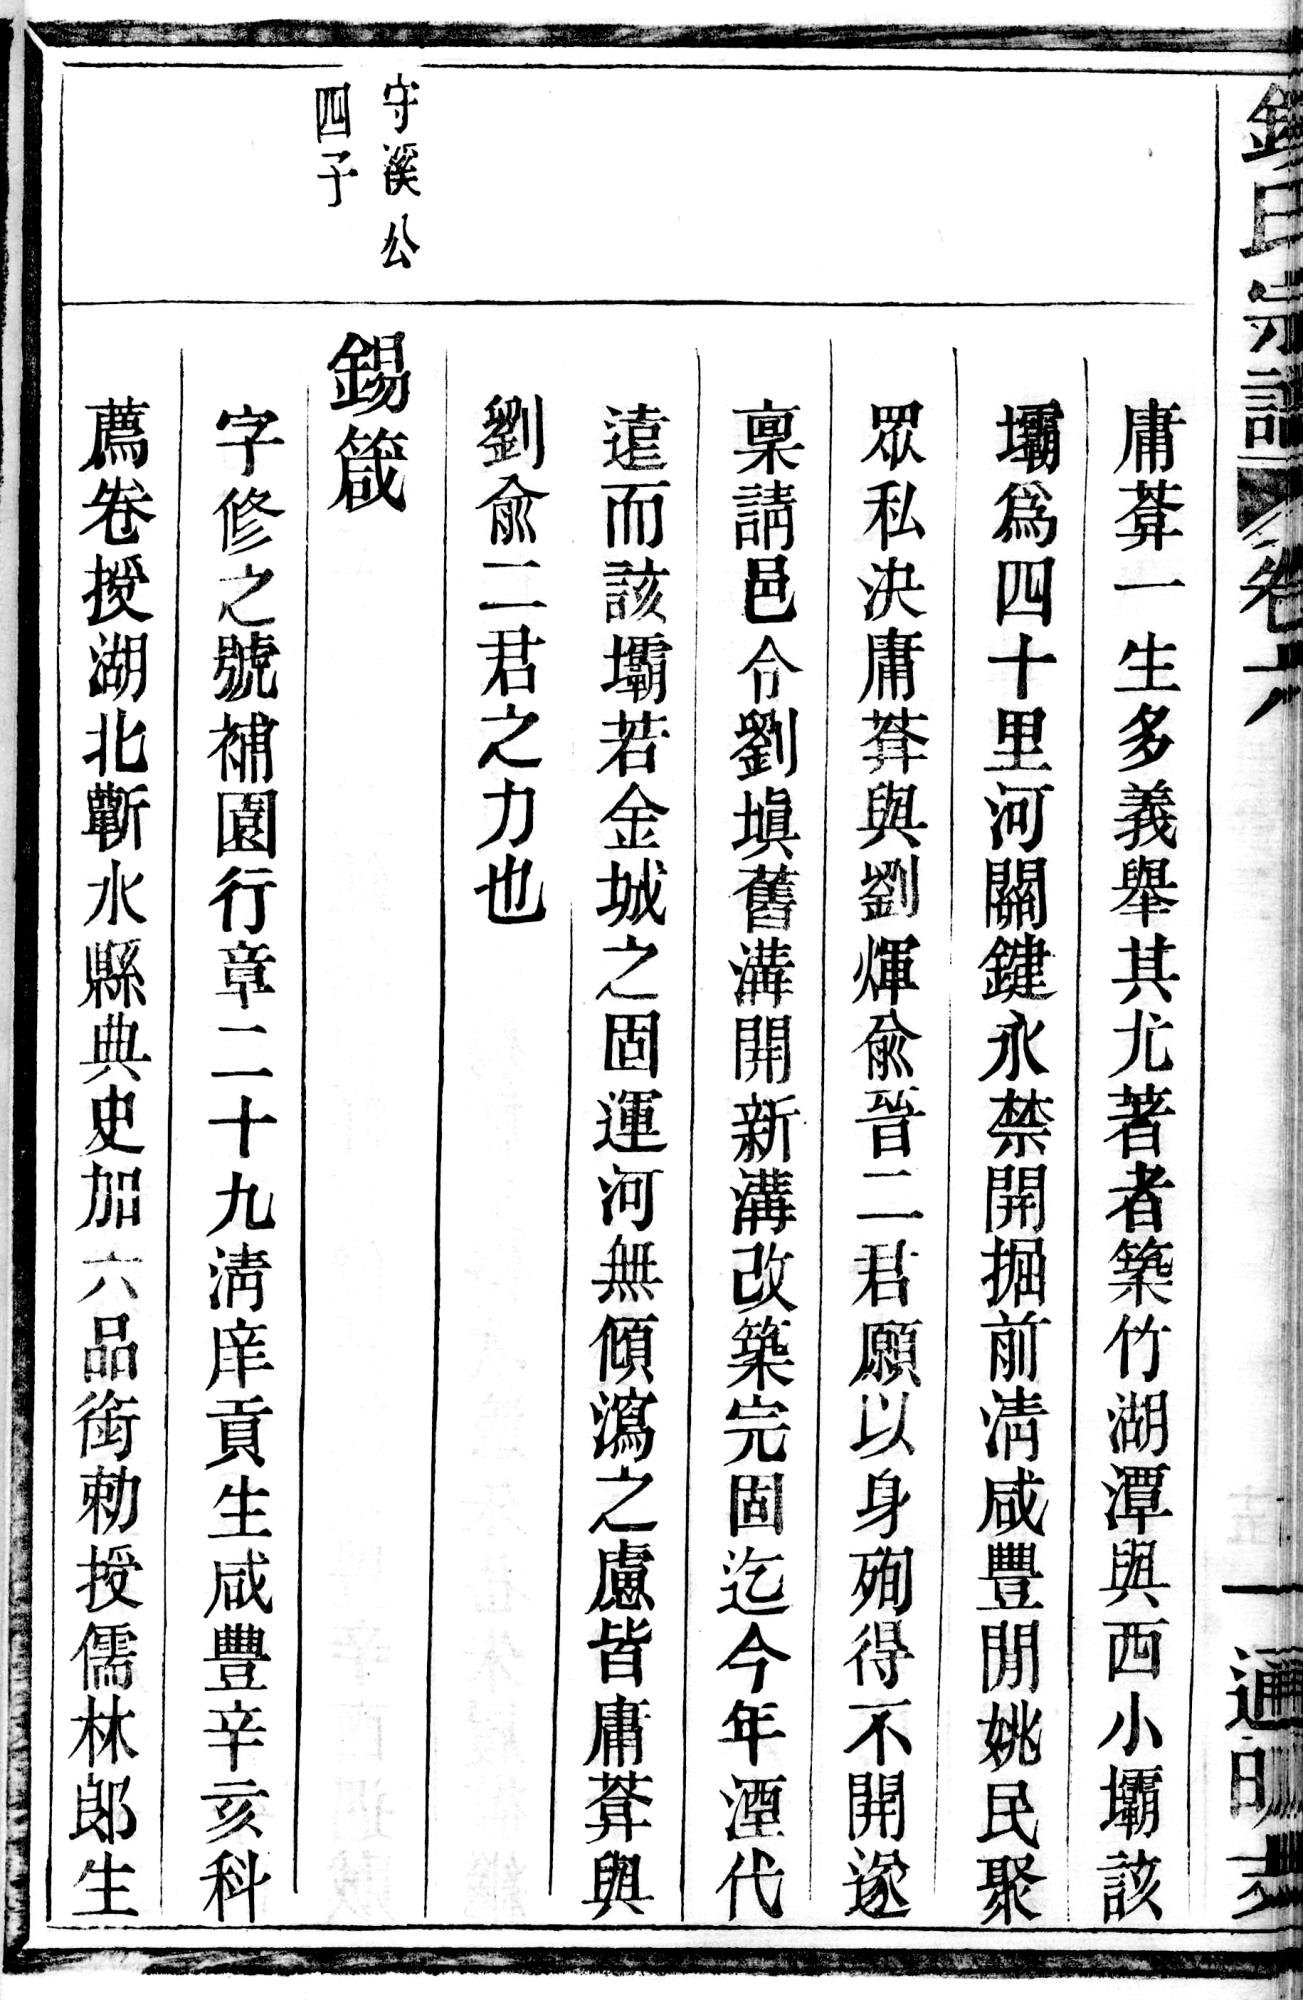 氏宗譜 卷六 一 通明支
庸葊一生多義舉其尤著者築竹湖潭與西小壩該
壩為四十里河關鍵永禁開掘前清咸豐閒姚民聚
眾私決庸葊與劉煇俞晉二君願以身殉得不開遂
稟請邑令劉塡舊溝開新溝改築完固迄今年湮代
遠而該壩若金城之固運河無傾瀉之慮皆庸葊與
劉俞二君之力也
守溪公
四子
錫箴
字修之號補園行章二十九清庠貢生咸豐辛亥科
薦卷授湖北蘄水縣典史加六品銜勅授儒林郎生